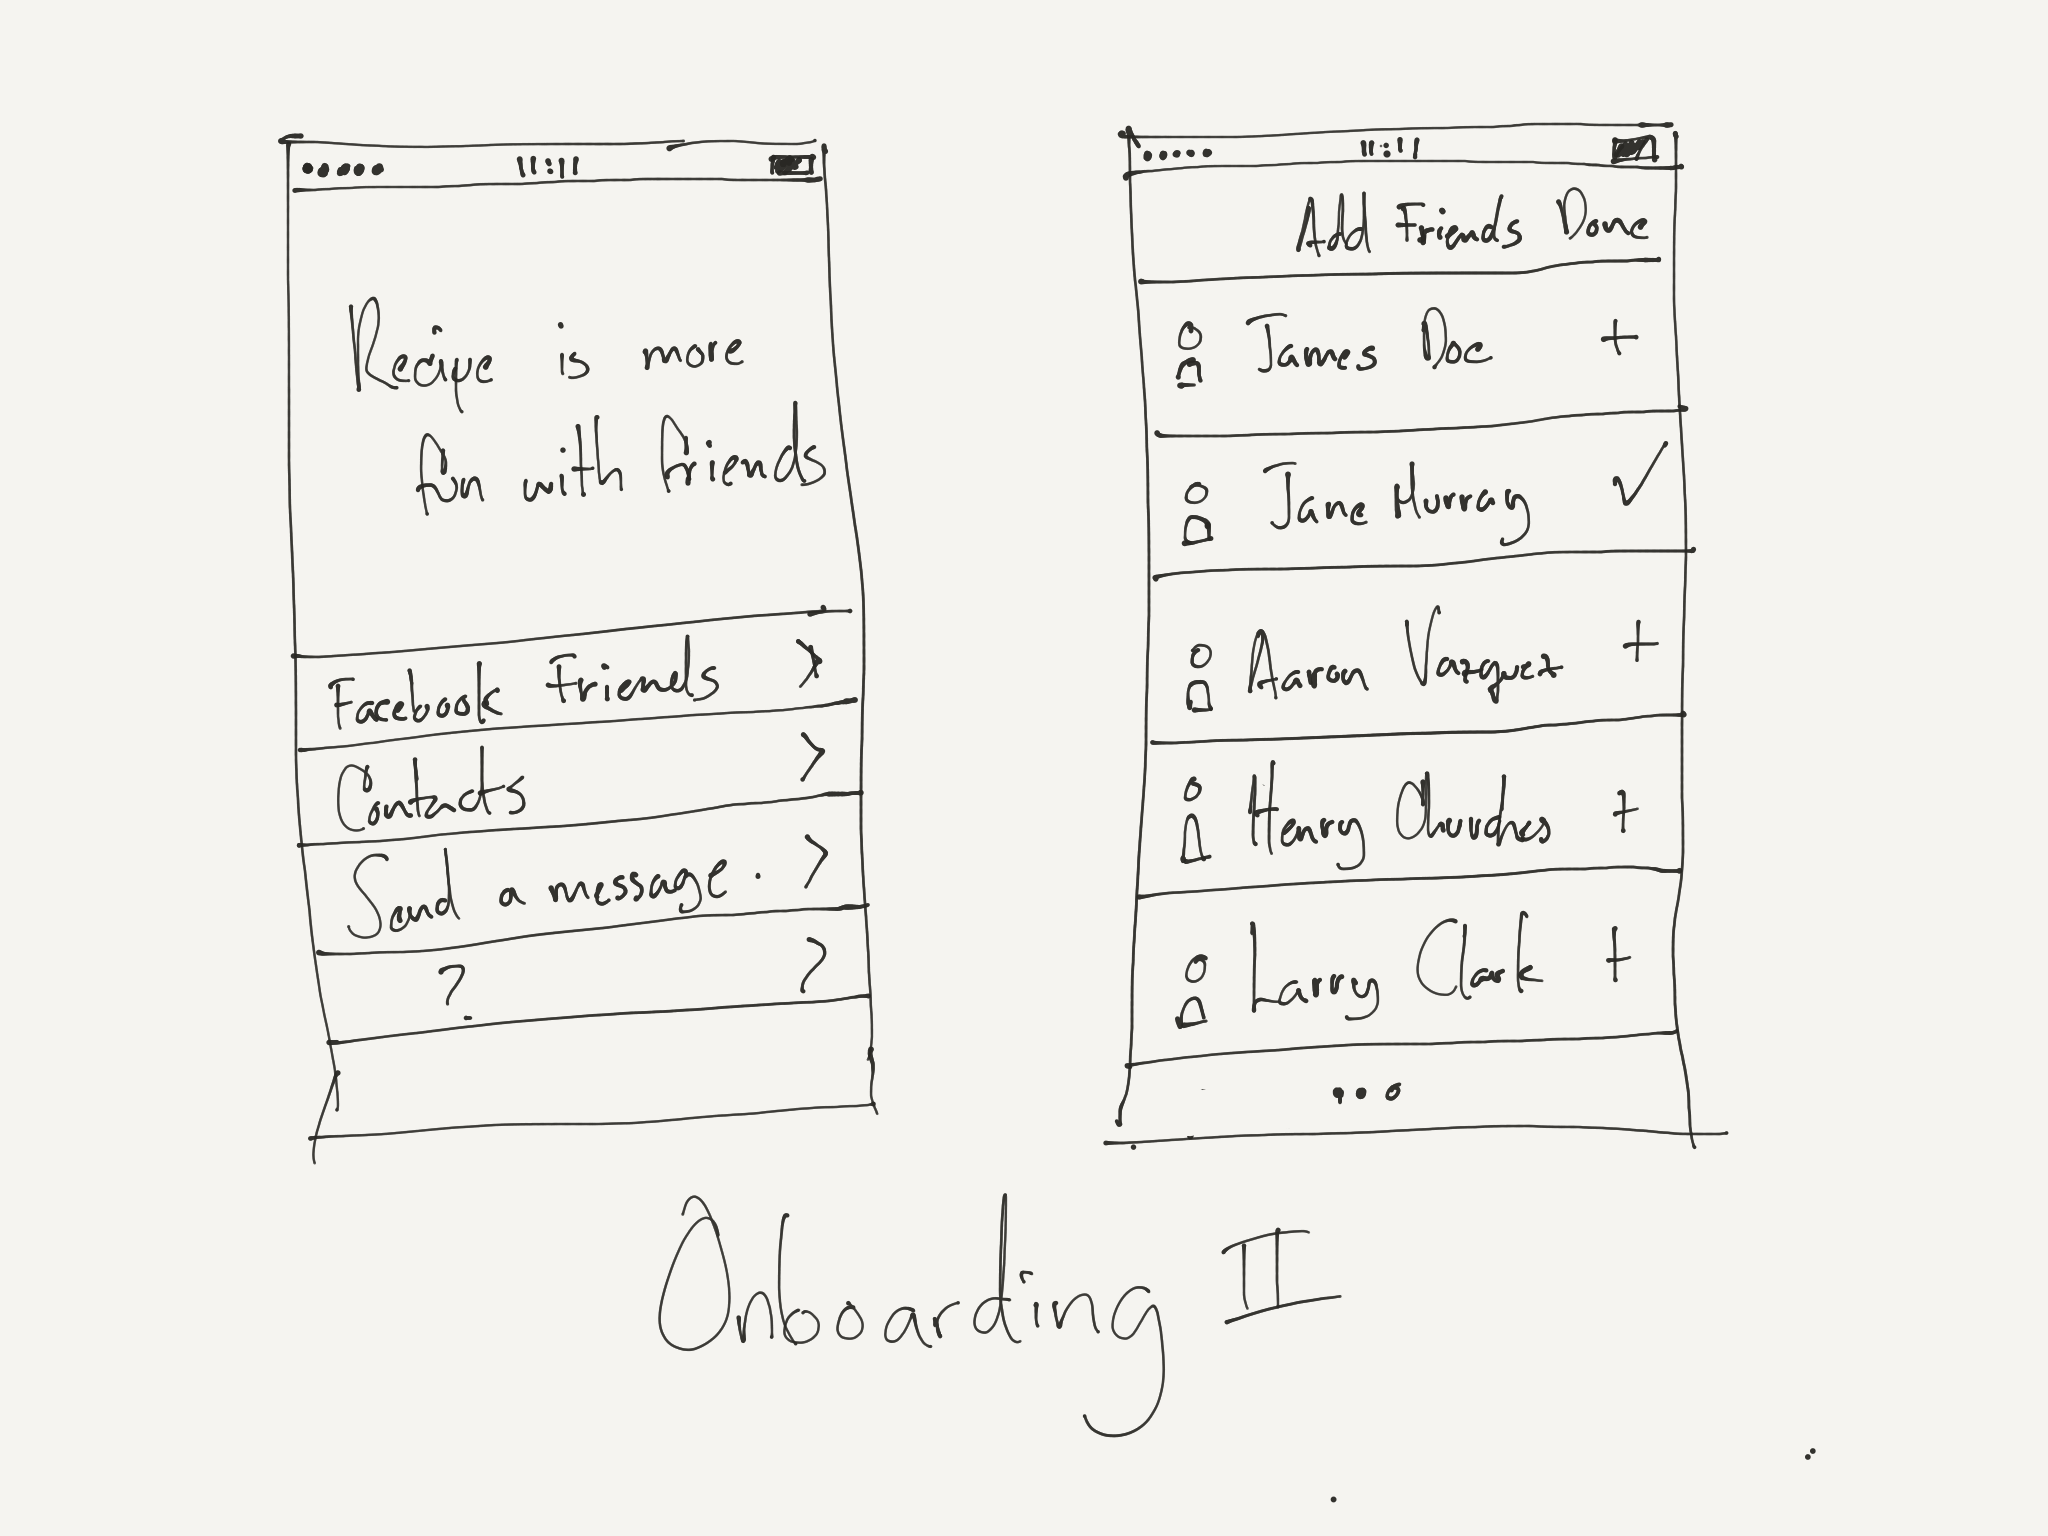 11:11
Recipe is more
fun with friends
Facebook Friends >
Contacts >
Send a message. >
? >
11:11
Add Friends Done
James Doe +
Jane Murray ✓
Aaron Vazquez +
Henry Churches +
Larry Clark +
...
Onboarding II